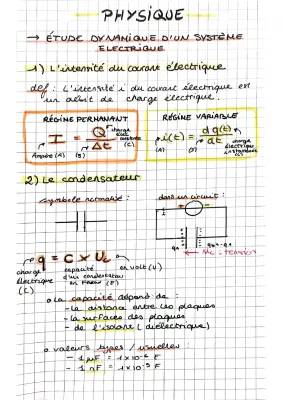 PHYSIQUE
→ ÉTUDE DYNAMIQUE D'UN SYSTÈME
ELECTRIQUE
1) L'intensité du courant électrique
def : L'intensité i du courant électrique est
un débit de charge électrique.
RÉGIME PERMANANT
I = Q / Δt
charge
constante
(C)
Ampère (A) (s)
RÉGIME VARIABLE
i(t) = dq(t) / dt
charge
électrique
instantanée
(C)
(A) (s)
2) Le condensateur
symbole normalisé :
dans un circuit :
qA qB
q = C x Uc
charge
électrique
(C)
capacité
d'un condensateur
en Farad (F)
en volt (V)
o la capacité dépend de :
- la distance entre les plaques
- la surfaces des plaques
- de l'isolant (diélectrique)
o valeurs types / usuelles :
- 1 µF = 1x10⁻⁶ F
- 1 nF = 1x10⁻⁹ F